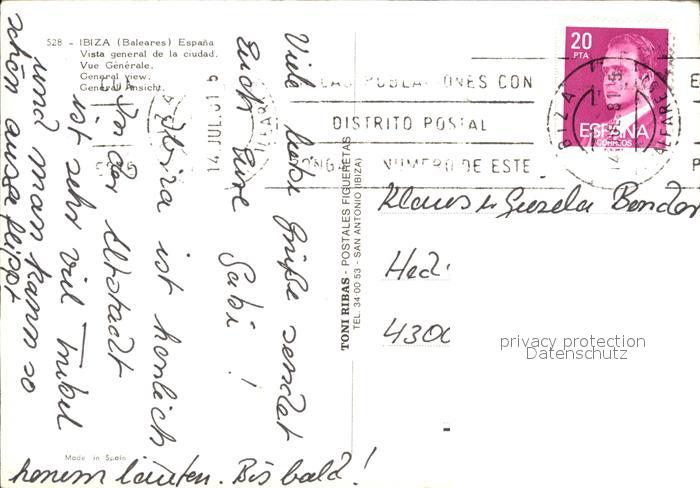 528 - IBIZA (Baleares) España
Vista general de la ciudad.
Vue Générale.
General view.
General Ansicht.
Viele liebe Grüße sendet
Euch Eure Gabi!
Ibiza ist herrlich
In der Altstadt
ist sehr viel Trubel
und man kann so
schön ausgeflippt
herumlaufen. Bis bald!
Made in Spain
TONI RIBAS - POSTALES FIGUERETAS
TEL. 34 00 53 - SAN ANTONIO (IBIZA)
14 JUL. 81
LAS POBLACIONES CON
DISTRITO POSTAL
PONGA NUMERO DE ESTE
IBIZA
BALEARES
20
PTA
ESPAÑA
CORREOS
Klaus u Gisela
4300
privacy protection
Datenschutz